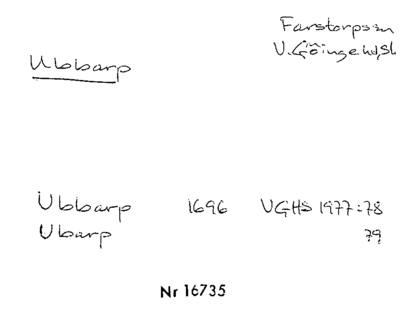 Farstorps sn
V. Göinge hd, Sk
Ubbarp
Ubbarp 1696 VGHS 1977:78
Ubarp 79
Nr 16735